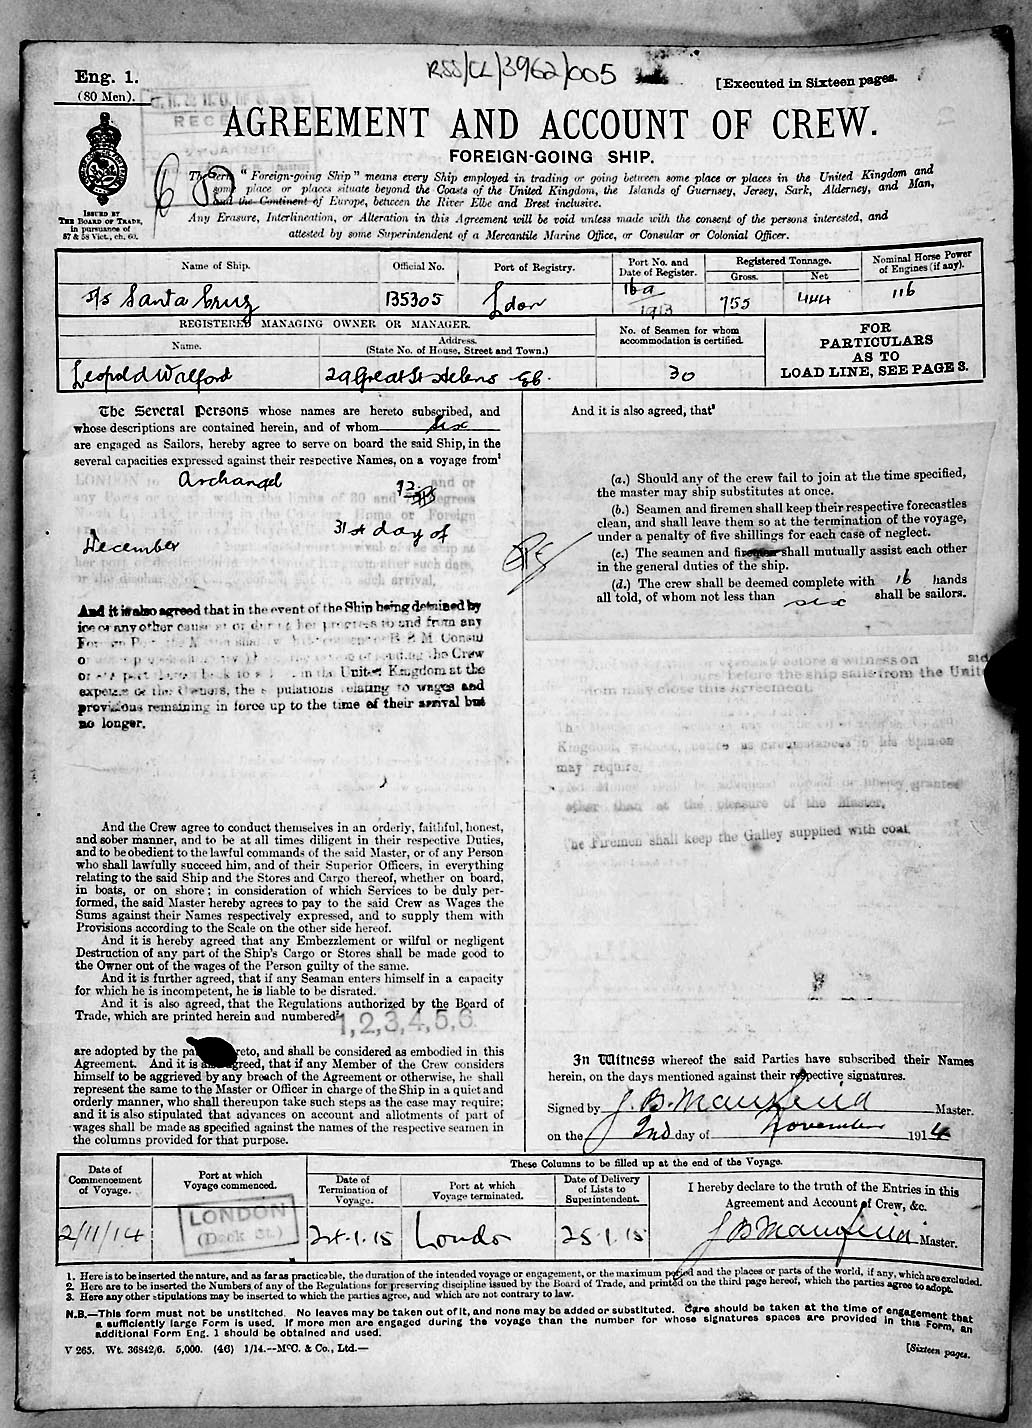 RSS/CL/3962/005
Eng. 1.
(80 Men).
[Executed in Sixteen pages.
AGREEMENT AND ACCOUNT OF CREW.
FOREIGN-GOING SHIP.
The term "Foreign-going Ship" means every Ship employed in trading or going between some place or places in the United Kingdom and
some place or places situate beyond the Coasts of the United Kingdom, the Islands of Guernsey, Jersey, Sark, Alderney, and Man,
and the Continent of Europe, between the River Elbe and Brest inclusive.
Any Erasure, Interlineation, or Alteration in this Agreement will be void unless made with the consent of the persons interested, and
attested by some Superintendent of a Mercantile Marine Office, or Consular or Colonial Officer.
ISSUED BY
THE BOARD OF TRADE,
in pursuance of
57 & 58 Vict., ch. 60.
Name of Ship. Official No. Port of Registry. Port No. and Date of Register. Registered Tonnage. Gross. Net Nominal Horse Power of Engines (if any).
s/s Santa Cruz 135305 Ldon 16a/1913 755 444 116
REGISTERED MANAGING OWNER OR MANAGER.
Name. Address. (State No. of House, Street and Town.)
No. of Seamen for whom accommodation is certified.
Leopold Walford 29 Great St Helens EC. 30
FOR
PARTICULARS
AS TO
LOAD LINE, SEE PAGE 3.
The Several Persons whose names are hereto subscribed, and
whose descriptions are contained herein, and of whom six
are engaged as Sailors, hereby agree to serve on board the said Ship, in the
several capacities expressed against their respective Names, on a voyage from¹
LONDON to Archangel and or
any Ports within the limits of 30 and degrees
31st day of
December
And it is also agreed that in the event of the Ship being detained by
ice or any other cause at or during her progress to and from any
the Crew
in the United Kingdom at the
expense of the Owners, the stipulations relating to wages and
provisions remaining in force up to the time of their arrival but
no longer.
And the Crew agree to conduct themselves in an orderly, faithful, honest,
and sober manner, and to be at all times diligent in their respective Duties,
and to be obedient to the lawful commands of the said Master, or of any Person
who shall lawfully succeed him, and of their Superior Officers, in everything
relating to the said Ship and the Stores and Cargo thereof, whether on board,
in boats, or on shore; in consideration of which Services to be duly per-
formed, the said Master hereby agrees to pay to the said Crew as Wages the
Sums against their Names respectively expressed, and to supply them with
Provisions according to the Scale on the other side hereof.
And it is hereby agreed that any Embezzlement or wilful or negligent
Destruction of any part of the Ship's Cargo or Stores shall be made good to
the Owner out of the wages of the Person guilty of the same.
And it is further agreed, that if any Seaman enters himself in a capacity
for which he is incompetent, he is liable to be disrated.
And it is also agreed, that the Regulations authorized by the Board of
Trade, which are printed herein and numbered² 1,2,3,4,5,6
are adopted by the parties hereto, and shall be considered as embodied in this
Agreement. And it is also agreed, that if any Member of the Crew considers
himself to be aggrieved by any breach of the Agreement or otherwise, he shall
represent the same to the Master or Officer in charge of the Ship in a quiet and
orderly manner, who shall thereupon take such steps as the case may require;
and it is also stipulated that advances on account and allotments of part of
wages shall be made as specified against the names of the respective seamen in
the columns provided for that purpose.
And it is also agreed, that³
(a.) Should any of the crew fail to join at the time specified,
the master may ship substitutes at once.
(b.) Seamen and firemen shall keep their respective forecastles
clean, and shall leave them so at the termination of the voyage,
under a penalty of five shillings for each case of neglect.
(c.) The seamen and firemen shall mutually assist each other
in the general duties of the ship.
(d.) The crew shall be deemed complete with 16 hands
all told, of whom not less than six shall be sailors.
before a witness on
hours before the ship sails from the Unit
may close this Agreement.
Kingdom, as circumstances in his opinion
may require.
other than at the pleasure of the Master.
The Firemen shall keep the Galley supplied with coal.
In Witness whereof the said Parties have subscribed their Names
herein, on the days mentioned against their respective signatures.
Signed by J. B. Master.
on the 2nd day of November 1914
Date of Commencement of Voyage. Port at which Voyage commenced.
These Columns to be filled up at the end of the Voyage.
Date of Termination of Voyage. Port at which Voyage terminated. Date of Delivery of Lists to Superintendent.
I hereby declare to the truth of the Entries in this
Agreement and Account of Crew, &c.
2/11/14 LONDON (Dock St.) 24.1.15 London 25.1.15 J B Master.
1. Here is to be inserted the nature, and as far as practicable, the duration of the intended voyage or engagement, or the maximum period and the places or parts of the world, if any, which are excluded.
2. Here are to be inserted the Numbers of any of the Regulations for preserving discipline issued by the Board of Trade, and printed on the third page hereof, which the parties agree to adopt.
3. Here any other stipulations may be inserted to which the parties agree, and which are not contrary to law.
N.B.—This form must not be unstitched. No leaves may be taken out of it, and none may be added or substituted. Care should be taken at the time of engagement that
a sufficiently large Form is used. If more men are engaged during the voyage than the number for whose signatures spaces are provided in this Form, an
additional Form Eng. 1 should be obtained and used.
V 265. Wt. 36842/6. 5,000. (46) 1/14.--McC. & Co., Ltd.—
[Sixteen pages.